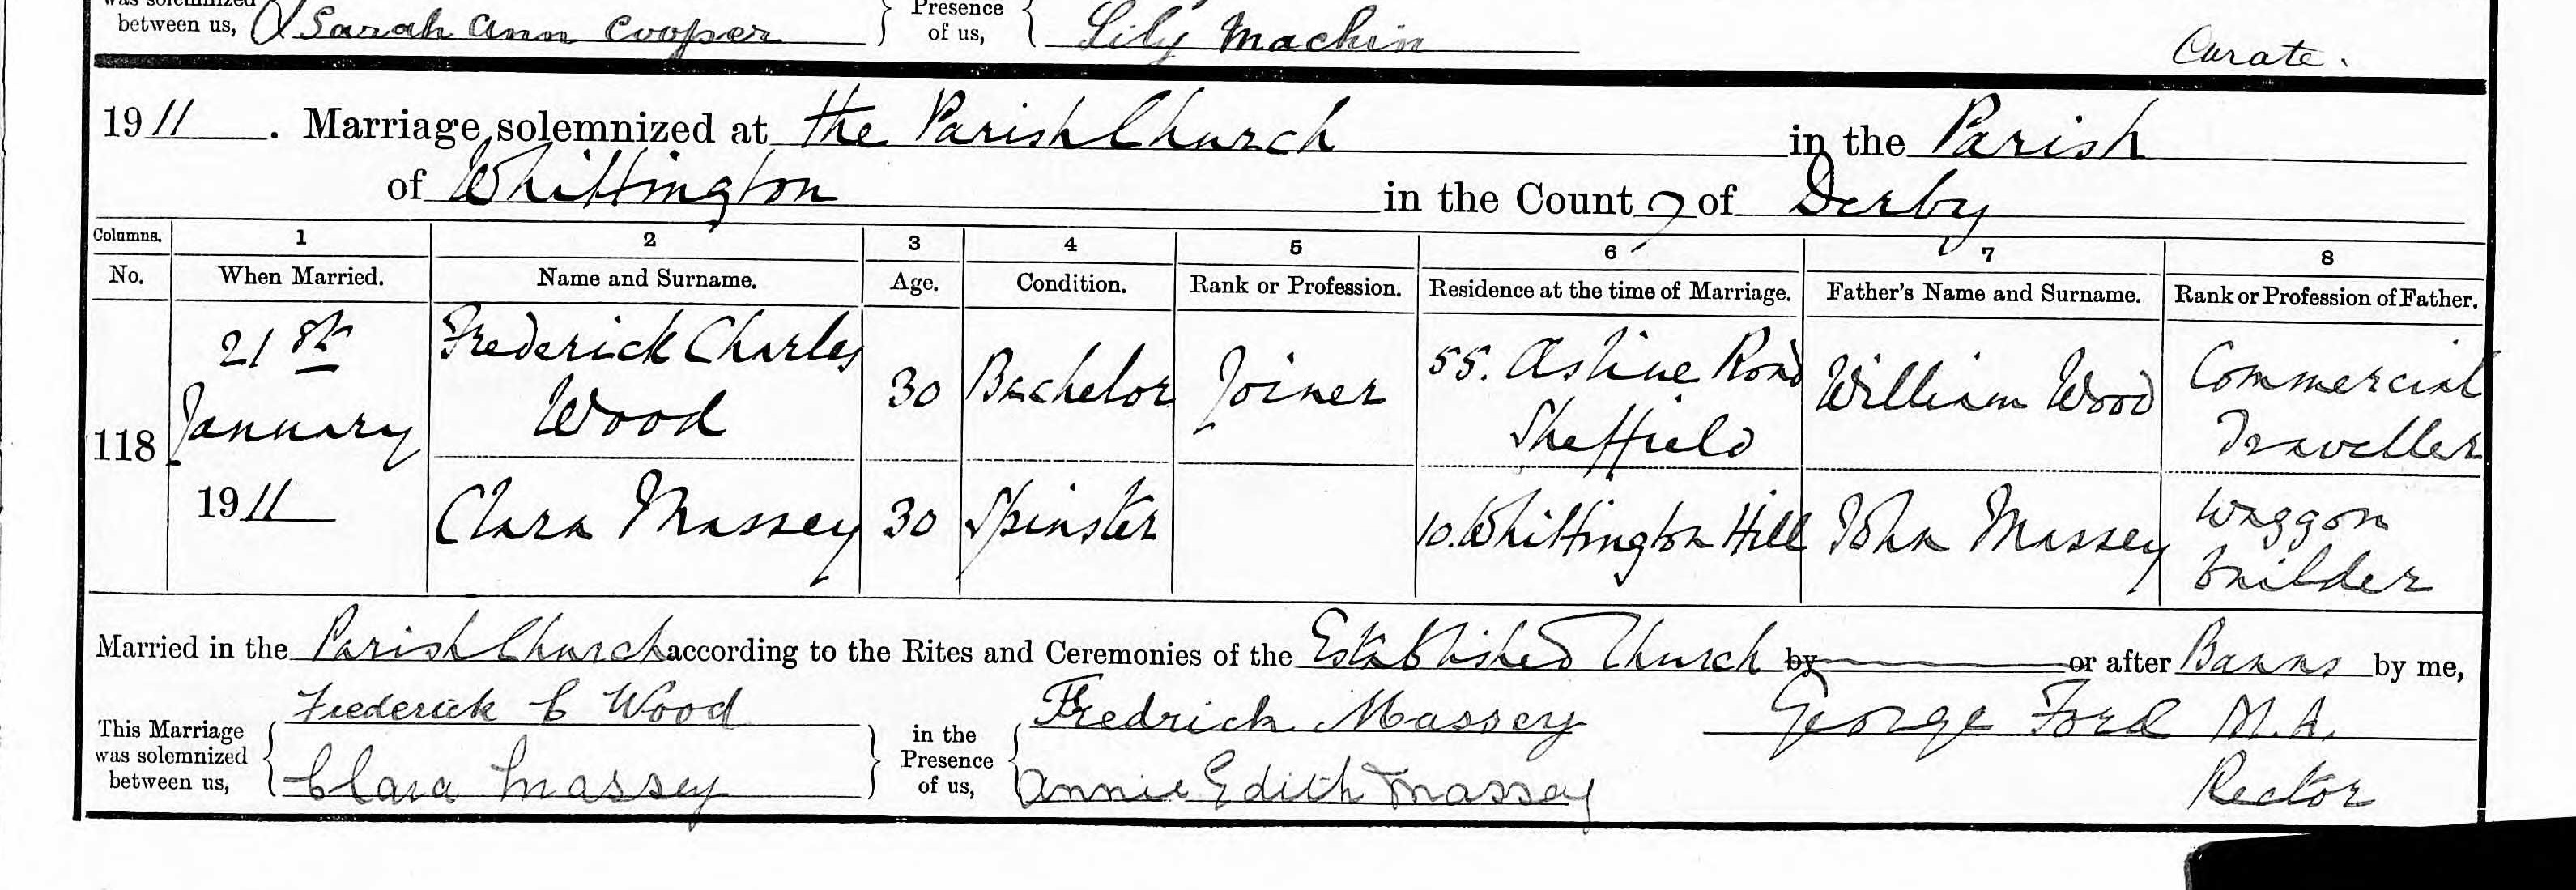 was solemnized
between us, Sarah Ann Cooper
Presence
of us, Lily Machin
Curate.
1911. Marriage solemnized at the Parish Church in the Parish
of Whittington in the County of Derby
Columns. 1 2 3 4 5 6 7 8
No. When Married. Name and Surname. Age. Condition. Rank or Profession. Residence at the time of Marriage. Father's Name and Surname. Rank or Profession of Father.
118
21st
January
1911
Frederick Charles
Wood
30 Bachelor Joiner
55. Road
Sheffield
William Wood
Commercial
Traveller
Clara Massey 30 Spinster 10. Whittington Hill John Massey
Waggon
builder
Married in the Parish Church according to the Rites and Ceremonies of the Established Church by or after Banns by me,
This Marriage
was solemnized
between us,
Frederick C Wood
Clara Massey
in the
Presence
of us,
Fredrick Massey
Annie Edith Massey
George Ford M.A.
Rector